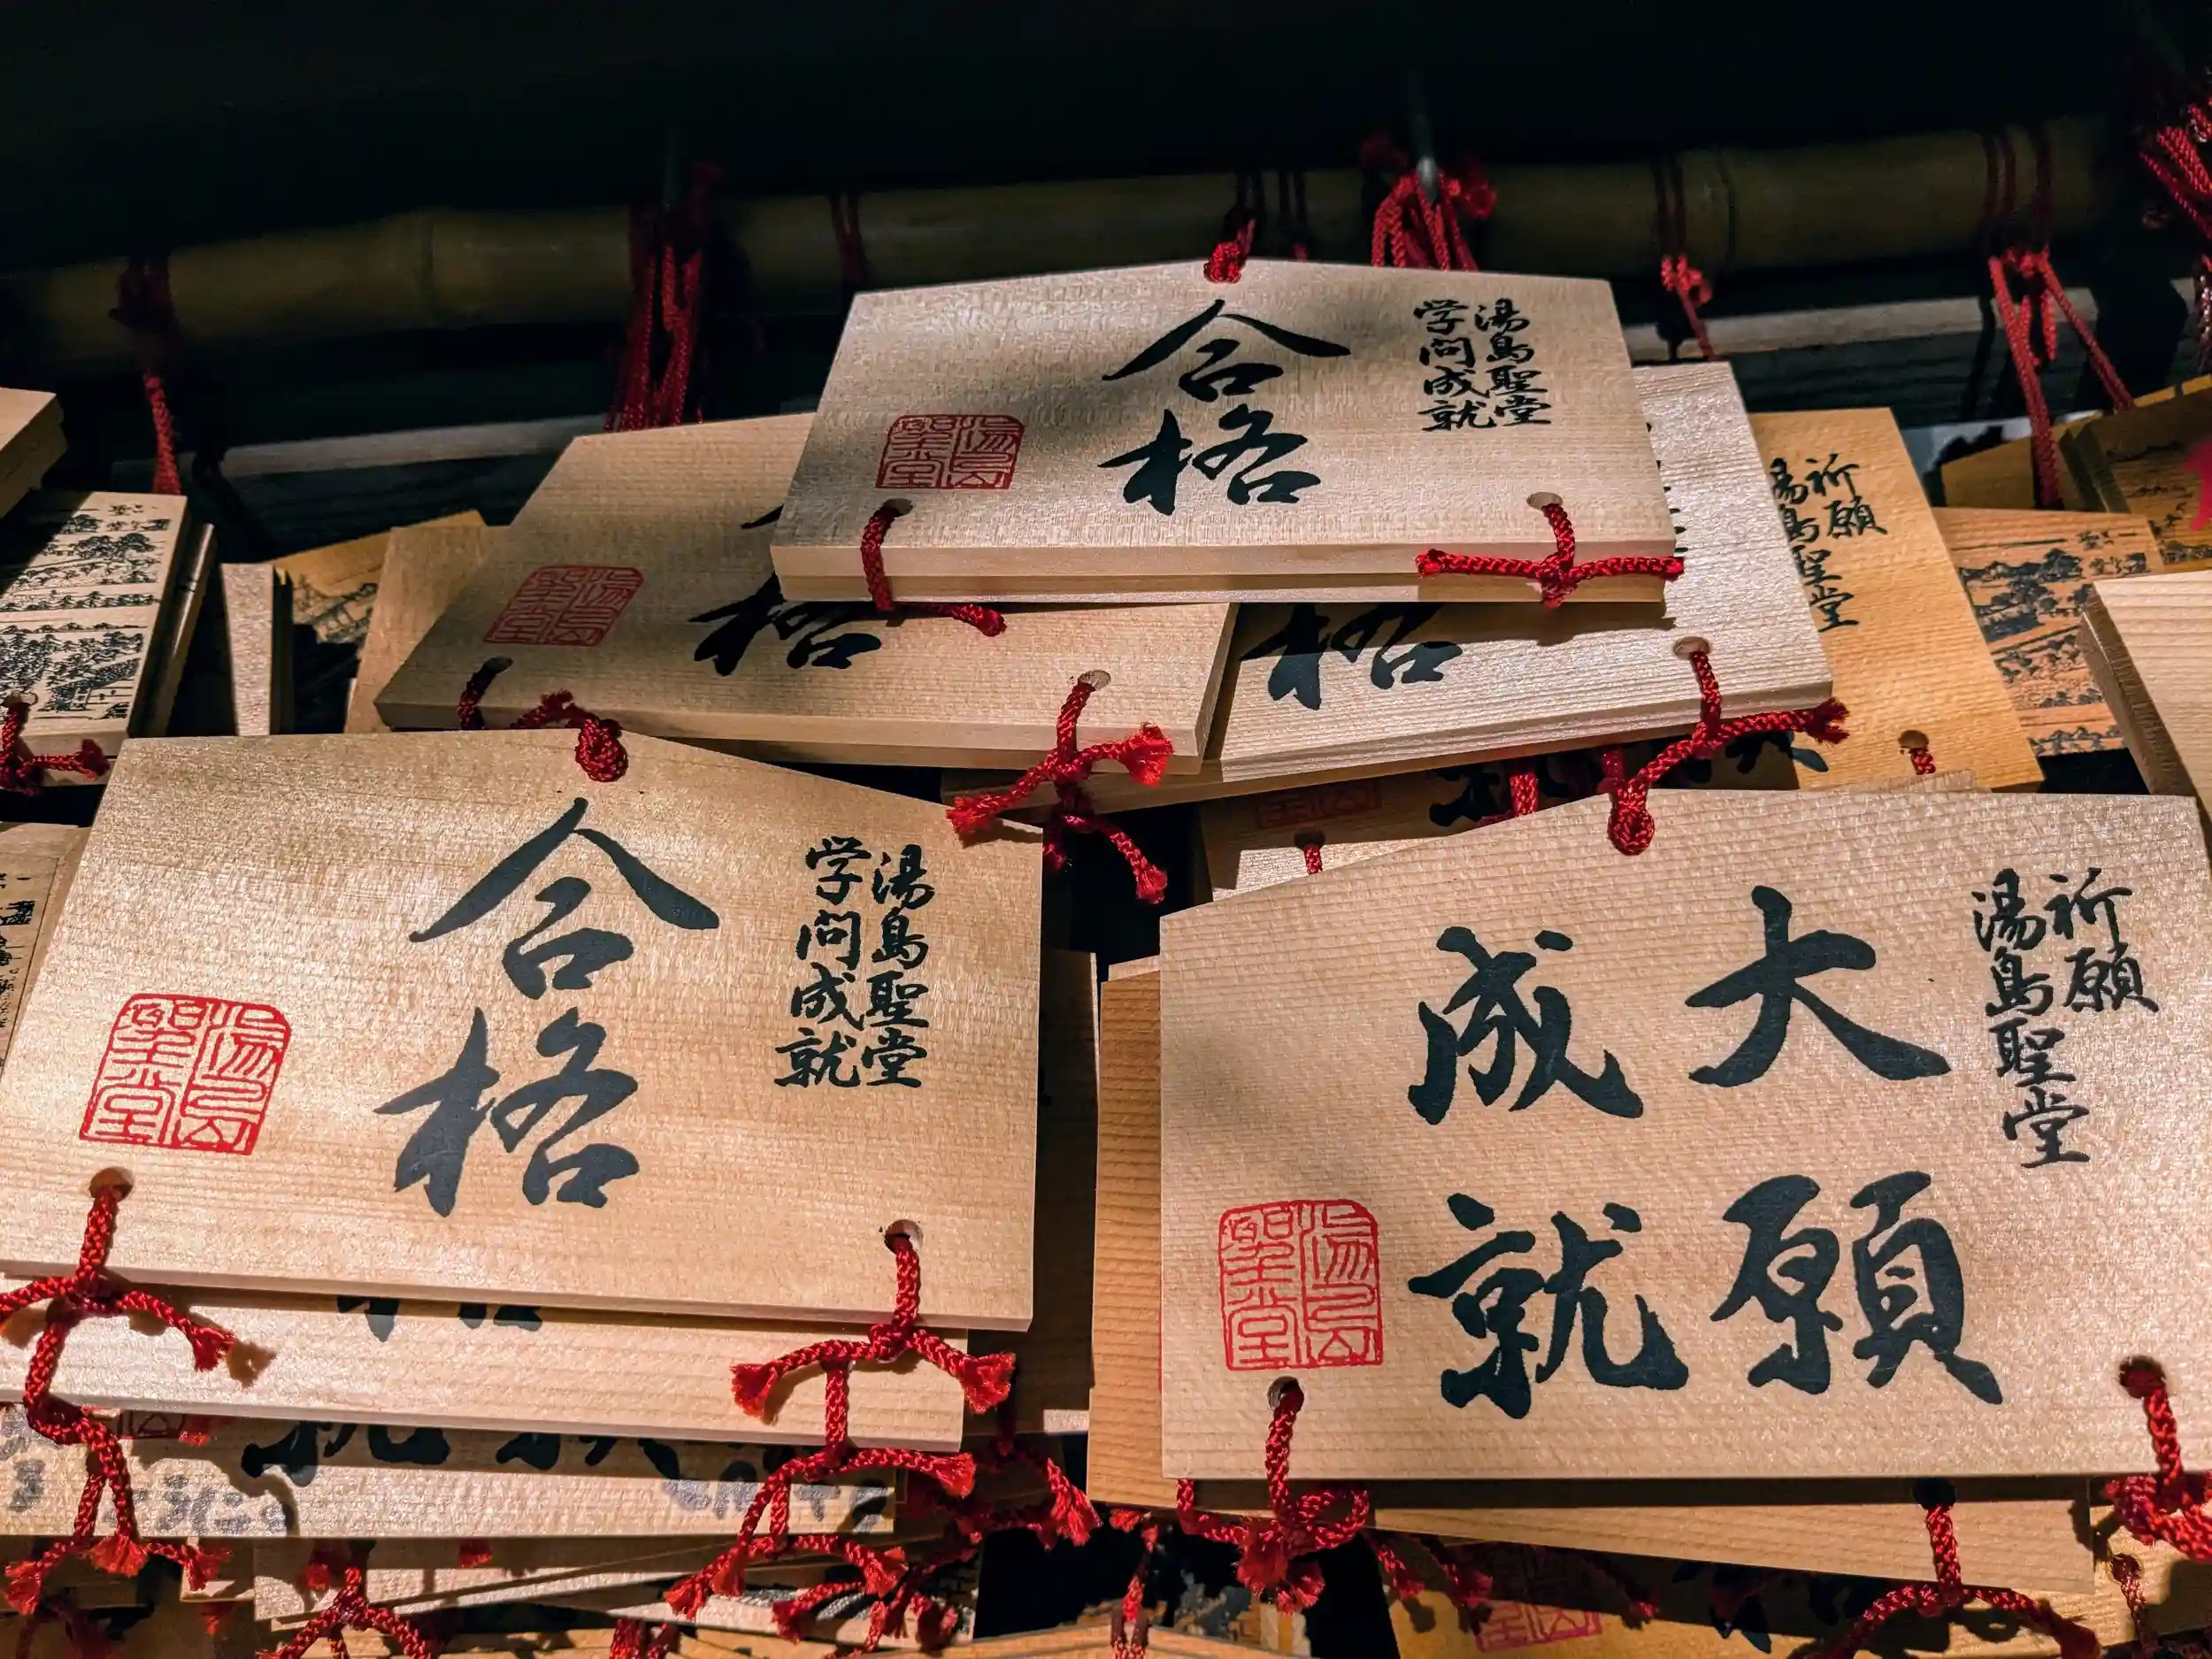 湯島聖堂
学問成就
合格
湯島聖堂
格
湯島聖堂
格
祈願
湯島聖堂
湯島聖堂
学問成就
合格
湯島聖堂
祈願
湯島聖堂
大願
成就
湯島聖堂